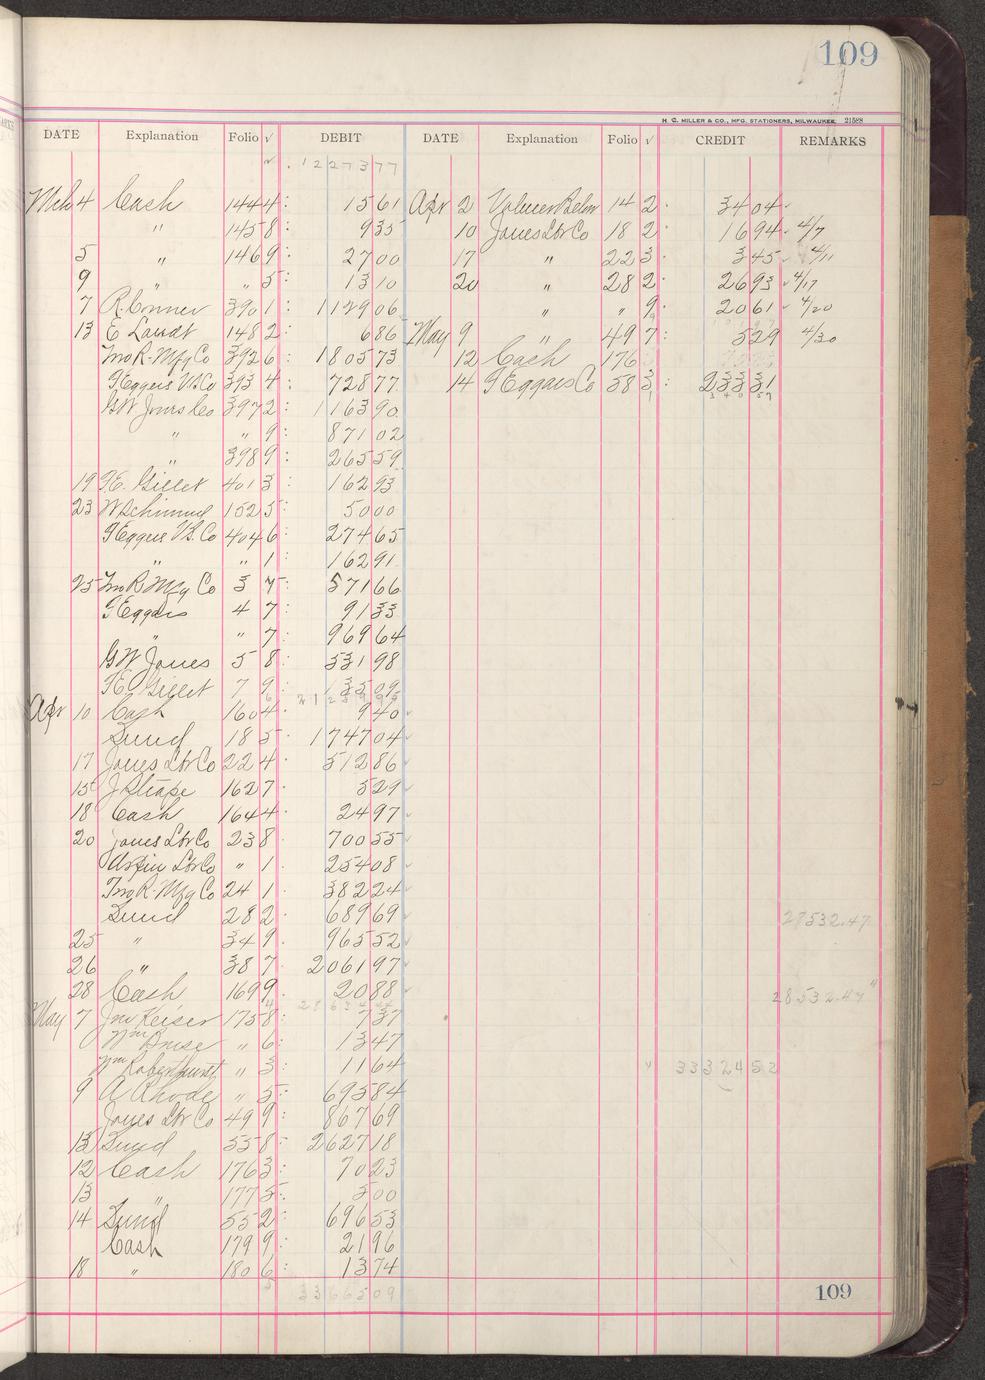 109
H. C. MILLER & CO., MFG. STATIONERS, MILWAUKEE. 21588
DATE Explanation Folio √ DEBIT DATE Explanation Folio √ CREDIT REMARKS
1 2 2 7 3 7 7
Mch 4 Cash 144 4 15 61 Apr 2 14 2 34 04
" 145 8 9 35 10 Jones Lbr Co 18 2 16 94 4/7
5 " 146 9 27 00 17 " 22 3 3 45 4/11
9 " " 5 13 10 20 " 28 2 26 93 4/17
7 R. Conner 390 1 1129 06 " " 9 20 61 4/20
13 E Laudt 148 2 6 86 May 9 " 49 7 5 29 4/30
Jno R. Mfg Co 392 6 1805 73 12 Cash 176
F Eggers V S. Co 393 4 728 77 14 F Eggers Co 38 3 233 31
GW Jones Co 397 2 1163 90
" " 9 871 02
" 398 9 265 59
19 F.E. Gillet 401 3 162 93
23 W Schimmel 152 5 50 00
F Eggers V.S. Co 404 6 274 65
" " 1 162 91
25 Jno R Mfg Co 3 7 571 66
F Eggers 4 7 91 33
" " 7 969 64
GW Jones 5 8 531 98
F.E. Gillet 7 9 135 09
Apr 10 Cash 160 4 9 40
Sund 18 5 1747 04
17 Jones Lbr Co 22 4 512 86
15 J Strape 162 7 5 29
18 Cash 164 4 24 97
20 Jones Lbr Co 23 8 700 55
Arpin Lbr Co " 1 254 08
Jno R. Mfg Co 24 1 382 24
Sund 28 2 689 69 27532.47
25 " 34 9 965 52
26 " 38 7 2061 97
28 Cash 169 9 20 88 28532.47
May 7 Jno Keiser 175 8 7 37
Wm Bruse " 6 13 47
Wm Rabenhurst " 3 11 64 33324 52
9 A Rhode " 5 695 84
Jones Lbr Co 49 9 867 69
13 Sund 53 8 2627 18
12 Cash 176 3 70 23
13 " 177 5 5 00
14 Sund 55 2 696 53
Cash 179 9 21 96
18 " 180 6 13 74
33665 09
109